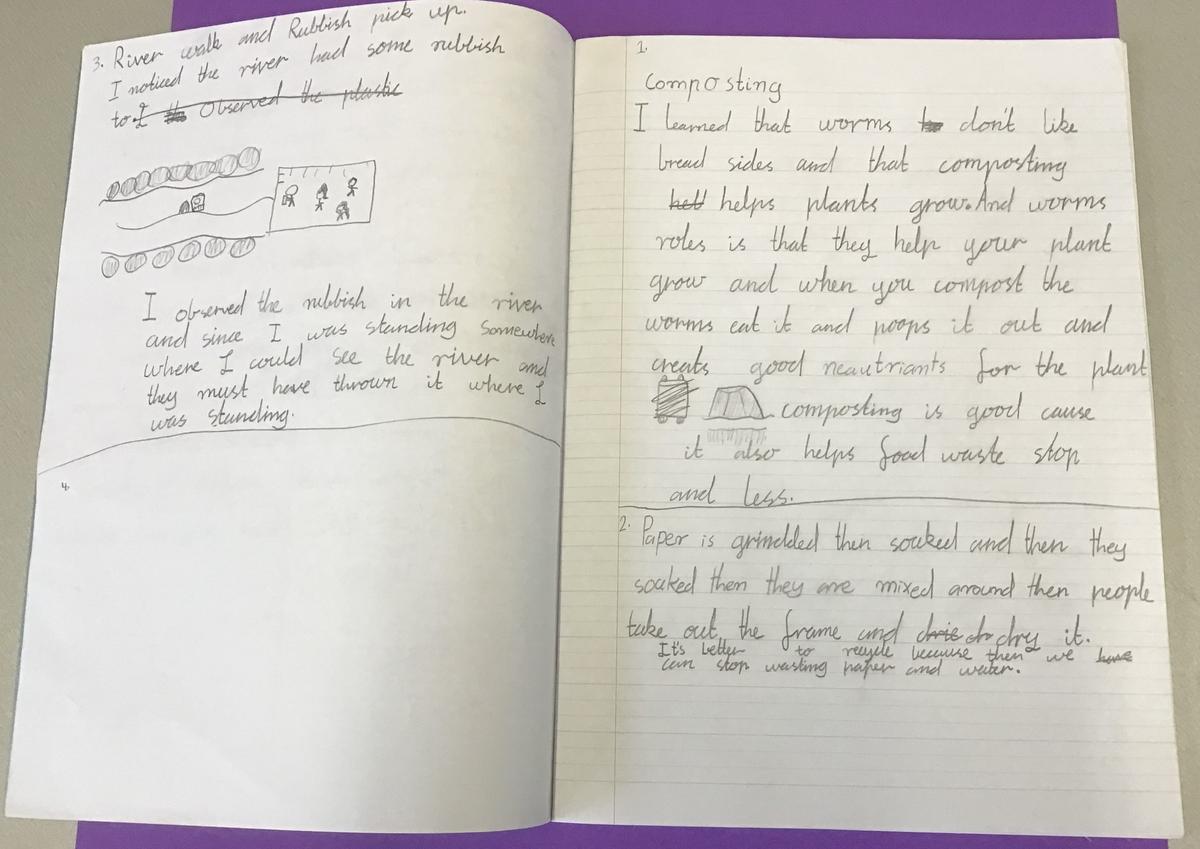 3. River walk and Rubbish pick up.
I noticed the river had some rubbish
to I the Observed the plastic
I observed the rubbish in the river
and since I was standing Somewhere
where I could see the river and
they must have thrown it where I
was standing.
4.
1.
Composting
I learned that worms to don't like
bread sides and that composting
hell helps plants grow. And worms
roles is that they help your plant
grow and when you compost the
worms eat it and poops it out and
creats good neautriants for the plant
composting is good cause
it also helps food waste stop
and less.
2. Paper is grindded then souked and then they
souked then they are mixed around then people
take out the frame and drie dr dry it.
It's better to recycle because then we have
can stop wasting paper and water.